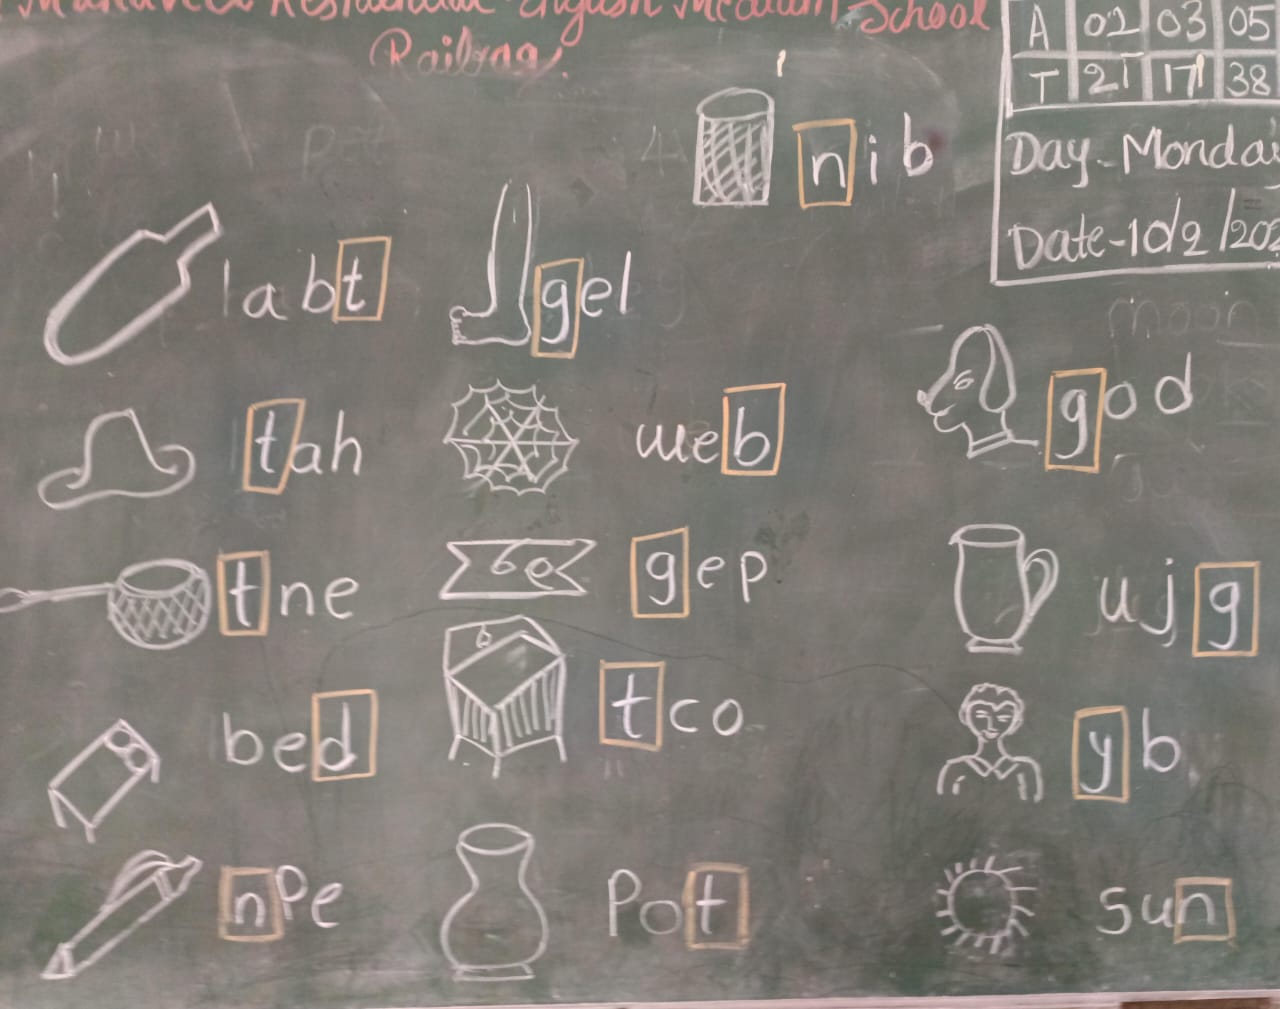 Residential English Medium School
Railbag.
A 02 03 05
T 21 17 38
Day-Monday
Date-10/2/202
nib
labt gel
god
tah web
6e
tne gep ujg
b
tco
bed yb
nPe Pot sun
moon